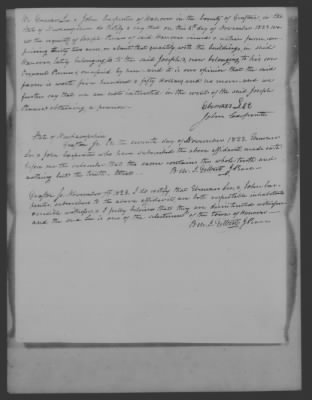 We Edward Lee & John Carpenter of Hanover in the County of Grafton in the
State of Newhampshire do testify & say that on this 6th day of November 1823 we
at the request of Joseph Pinneo of said Hanover viewed a certain farm con-
prising thirty two acres or about that quantity with the buildings, in said
Hanover lately belonging to the said Joseph & now belonging to his son
Pinneo & occupied by him and it is our opinion that the said
farm is worth four hundred & fifty dollars and no more and we
further say that we are not interested in the event of the said Joseph
Pinneo obtaining a pension.
Edward Lee
John Carpenter
State of Newhampshire
Grafton Ss. On the seventh day of November 1823. Edward
Lee & John Carpenter who have subscribed the above affidavit made oath
before me the subscriber that the same contains the whole truth and
nothing but the truth. Attest
B. M. J. Gilbert J. Peace
Grafton Ss. November 7th 1823. I do certify that Edward Lee & John Car-
penter subscribers to the above affidavit are both respectable inhabitants
credible witnesses & I fully believe that they are disinterested witnesses
and the said Lee is one of the selectmen of the town of Hanover
B. M. J. Gilbert J. Peace